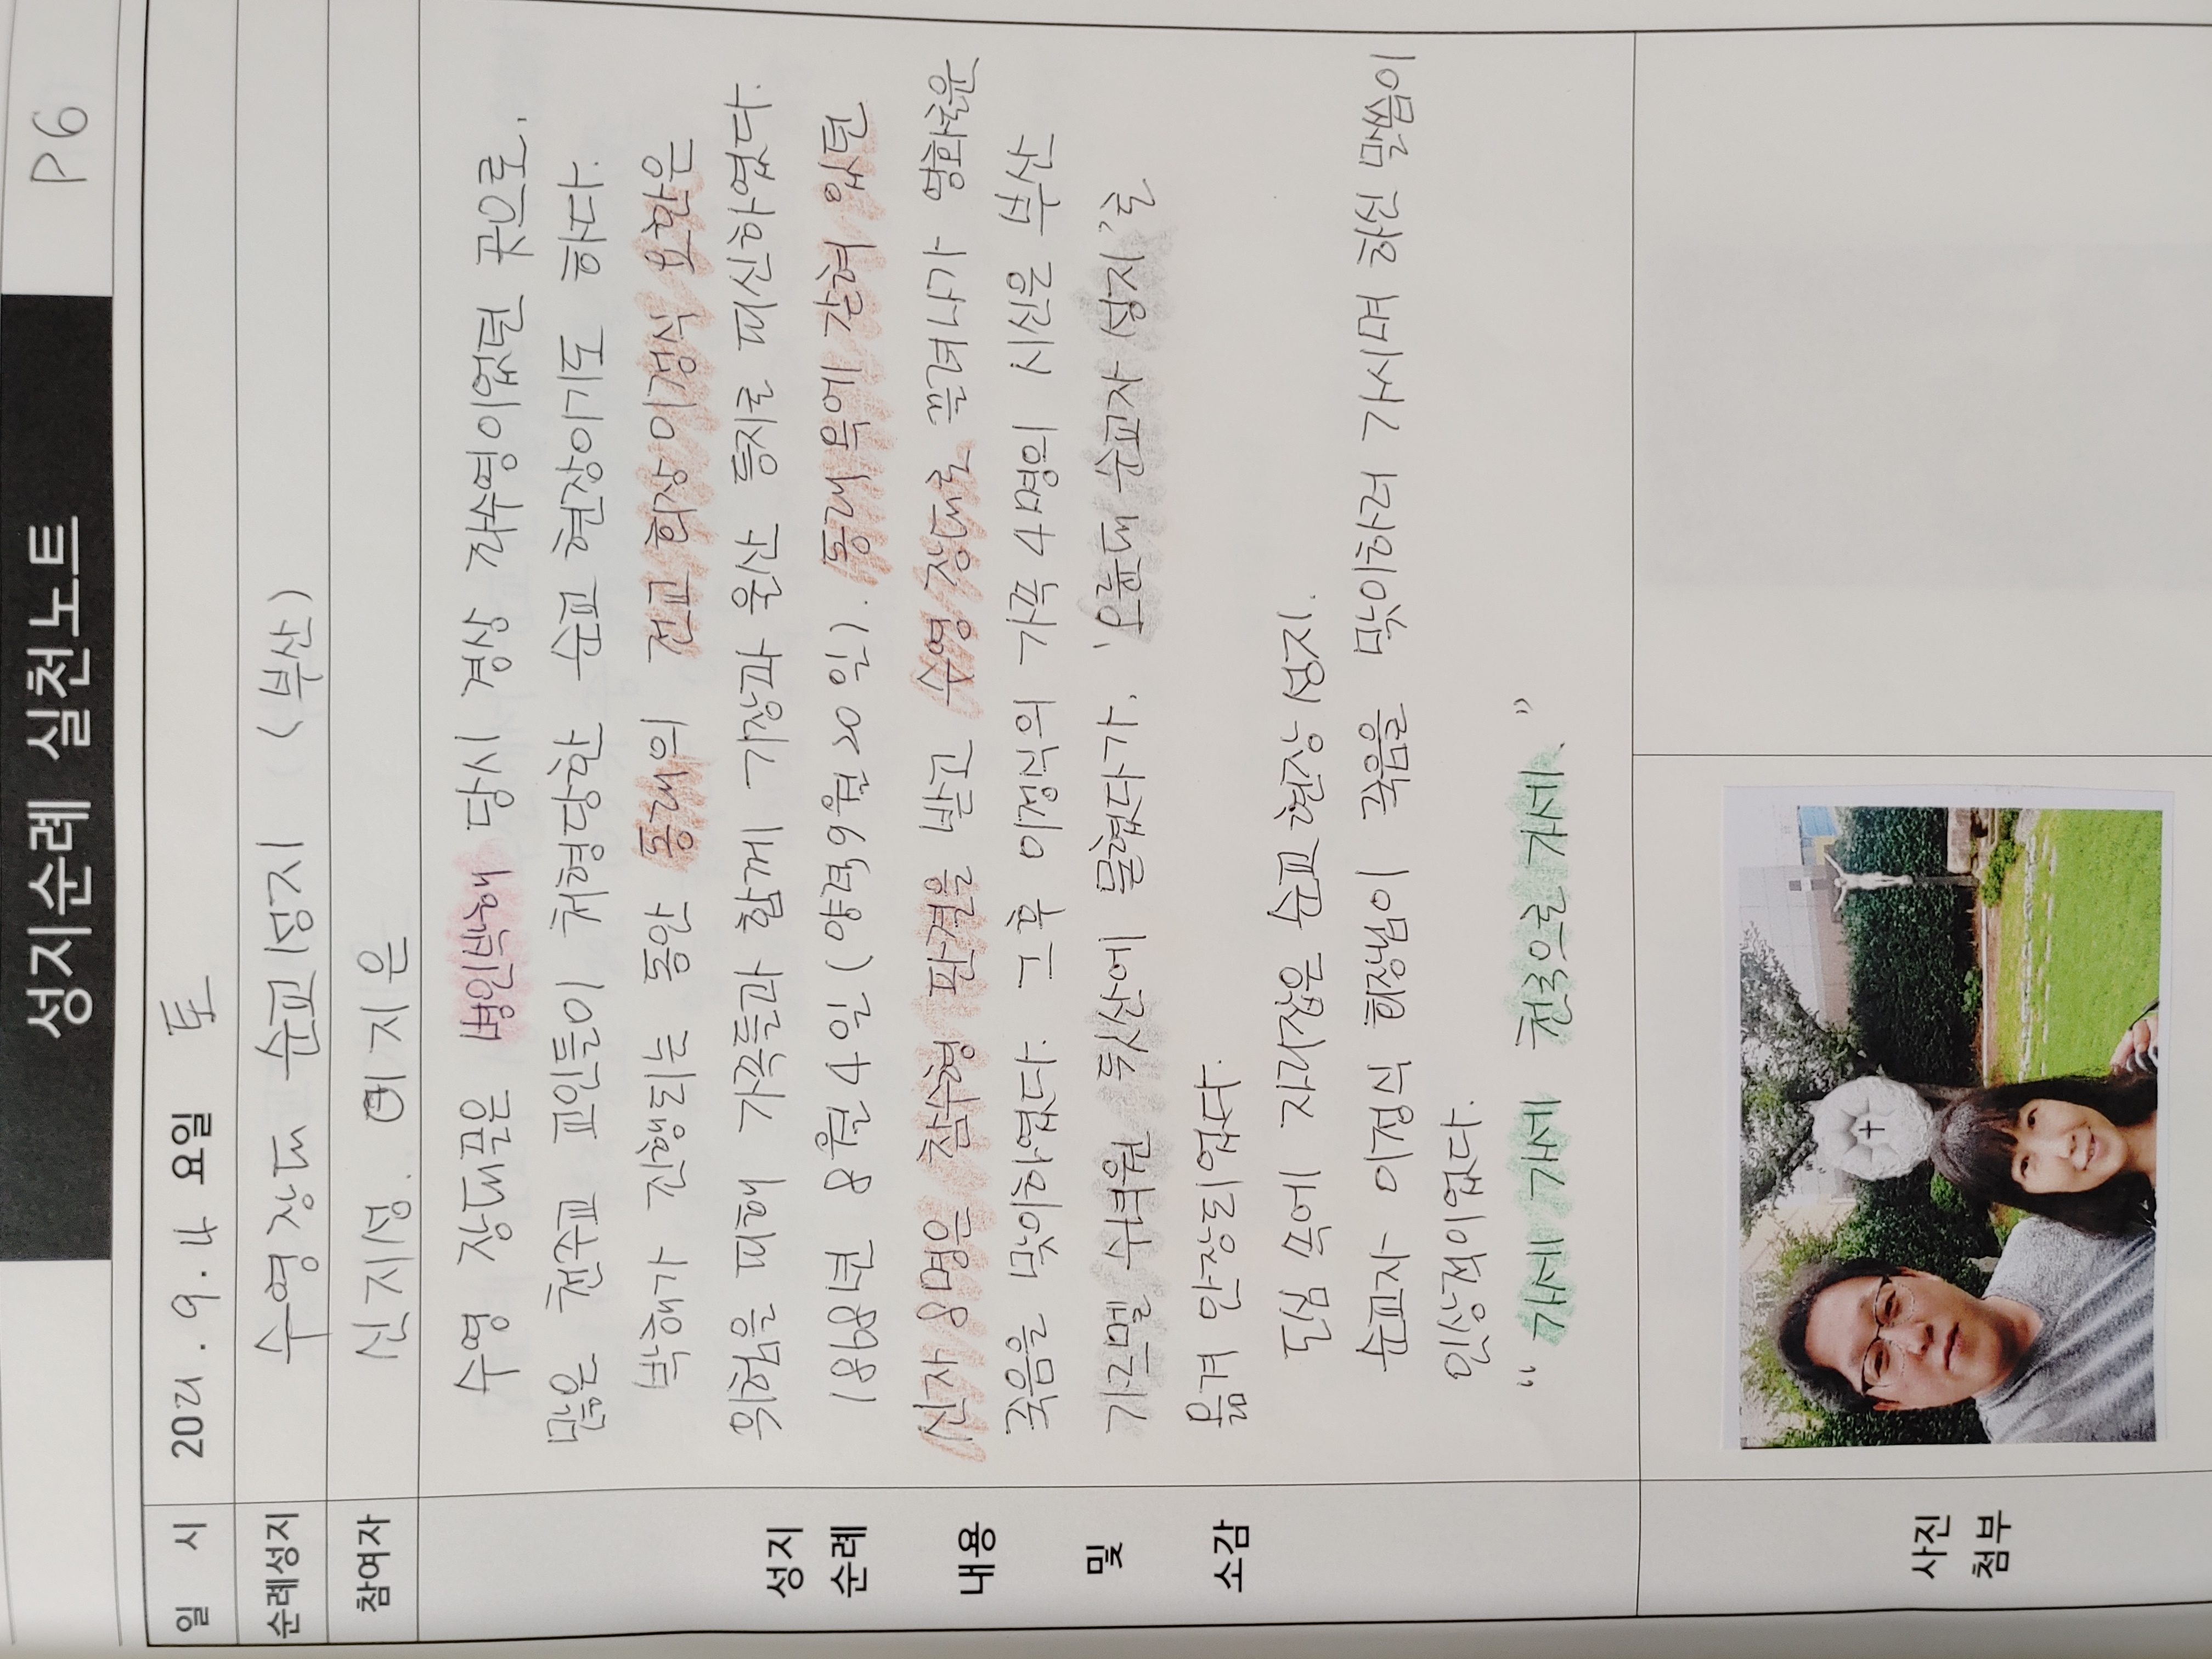 성지순례 실천노트 P6
일 시 2021. 9. 4 요일 토
순례성지 수영장대 순교성지 (부산)
참여자 신지성. 이지은
수영 장대끝은 병인박해 당시 경상 좌수영이었던 곳으로,
많은 천주교 교인들이 처형당한 순교 현장이기도 하다.
박해가 진행되는 동안 동래의 전교 회장 이정식 요한은
위험을 피해 가족들과 함께 기장과 울산 등지로 피신하였다.
1868년 8월 4일 (양력 9월 20일). 동래 옥에 갇혀 있던
신자 8명은 참수형 판결을 받고 수영 장대로 끌려나가 영화로운
죽음을 맞이하였다. 그 후 이정식의 가족 4명의 시신은 부산
가르멜 수녀원 뒷산에 묻혔다가, '오륜대 순교자 성지'로
옮겨 안장되었다.
도심 속에 자리잡은 순교 현장 성지.
순교자 이정식 회장님이 죽음을 맞이하러 가시며 하신 말씀이
인상적이었다.
"가세 가세 천국으로 가세."
성지
순례
내용
및
소감
사진
첨부